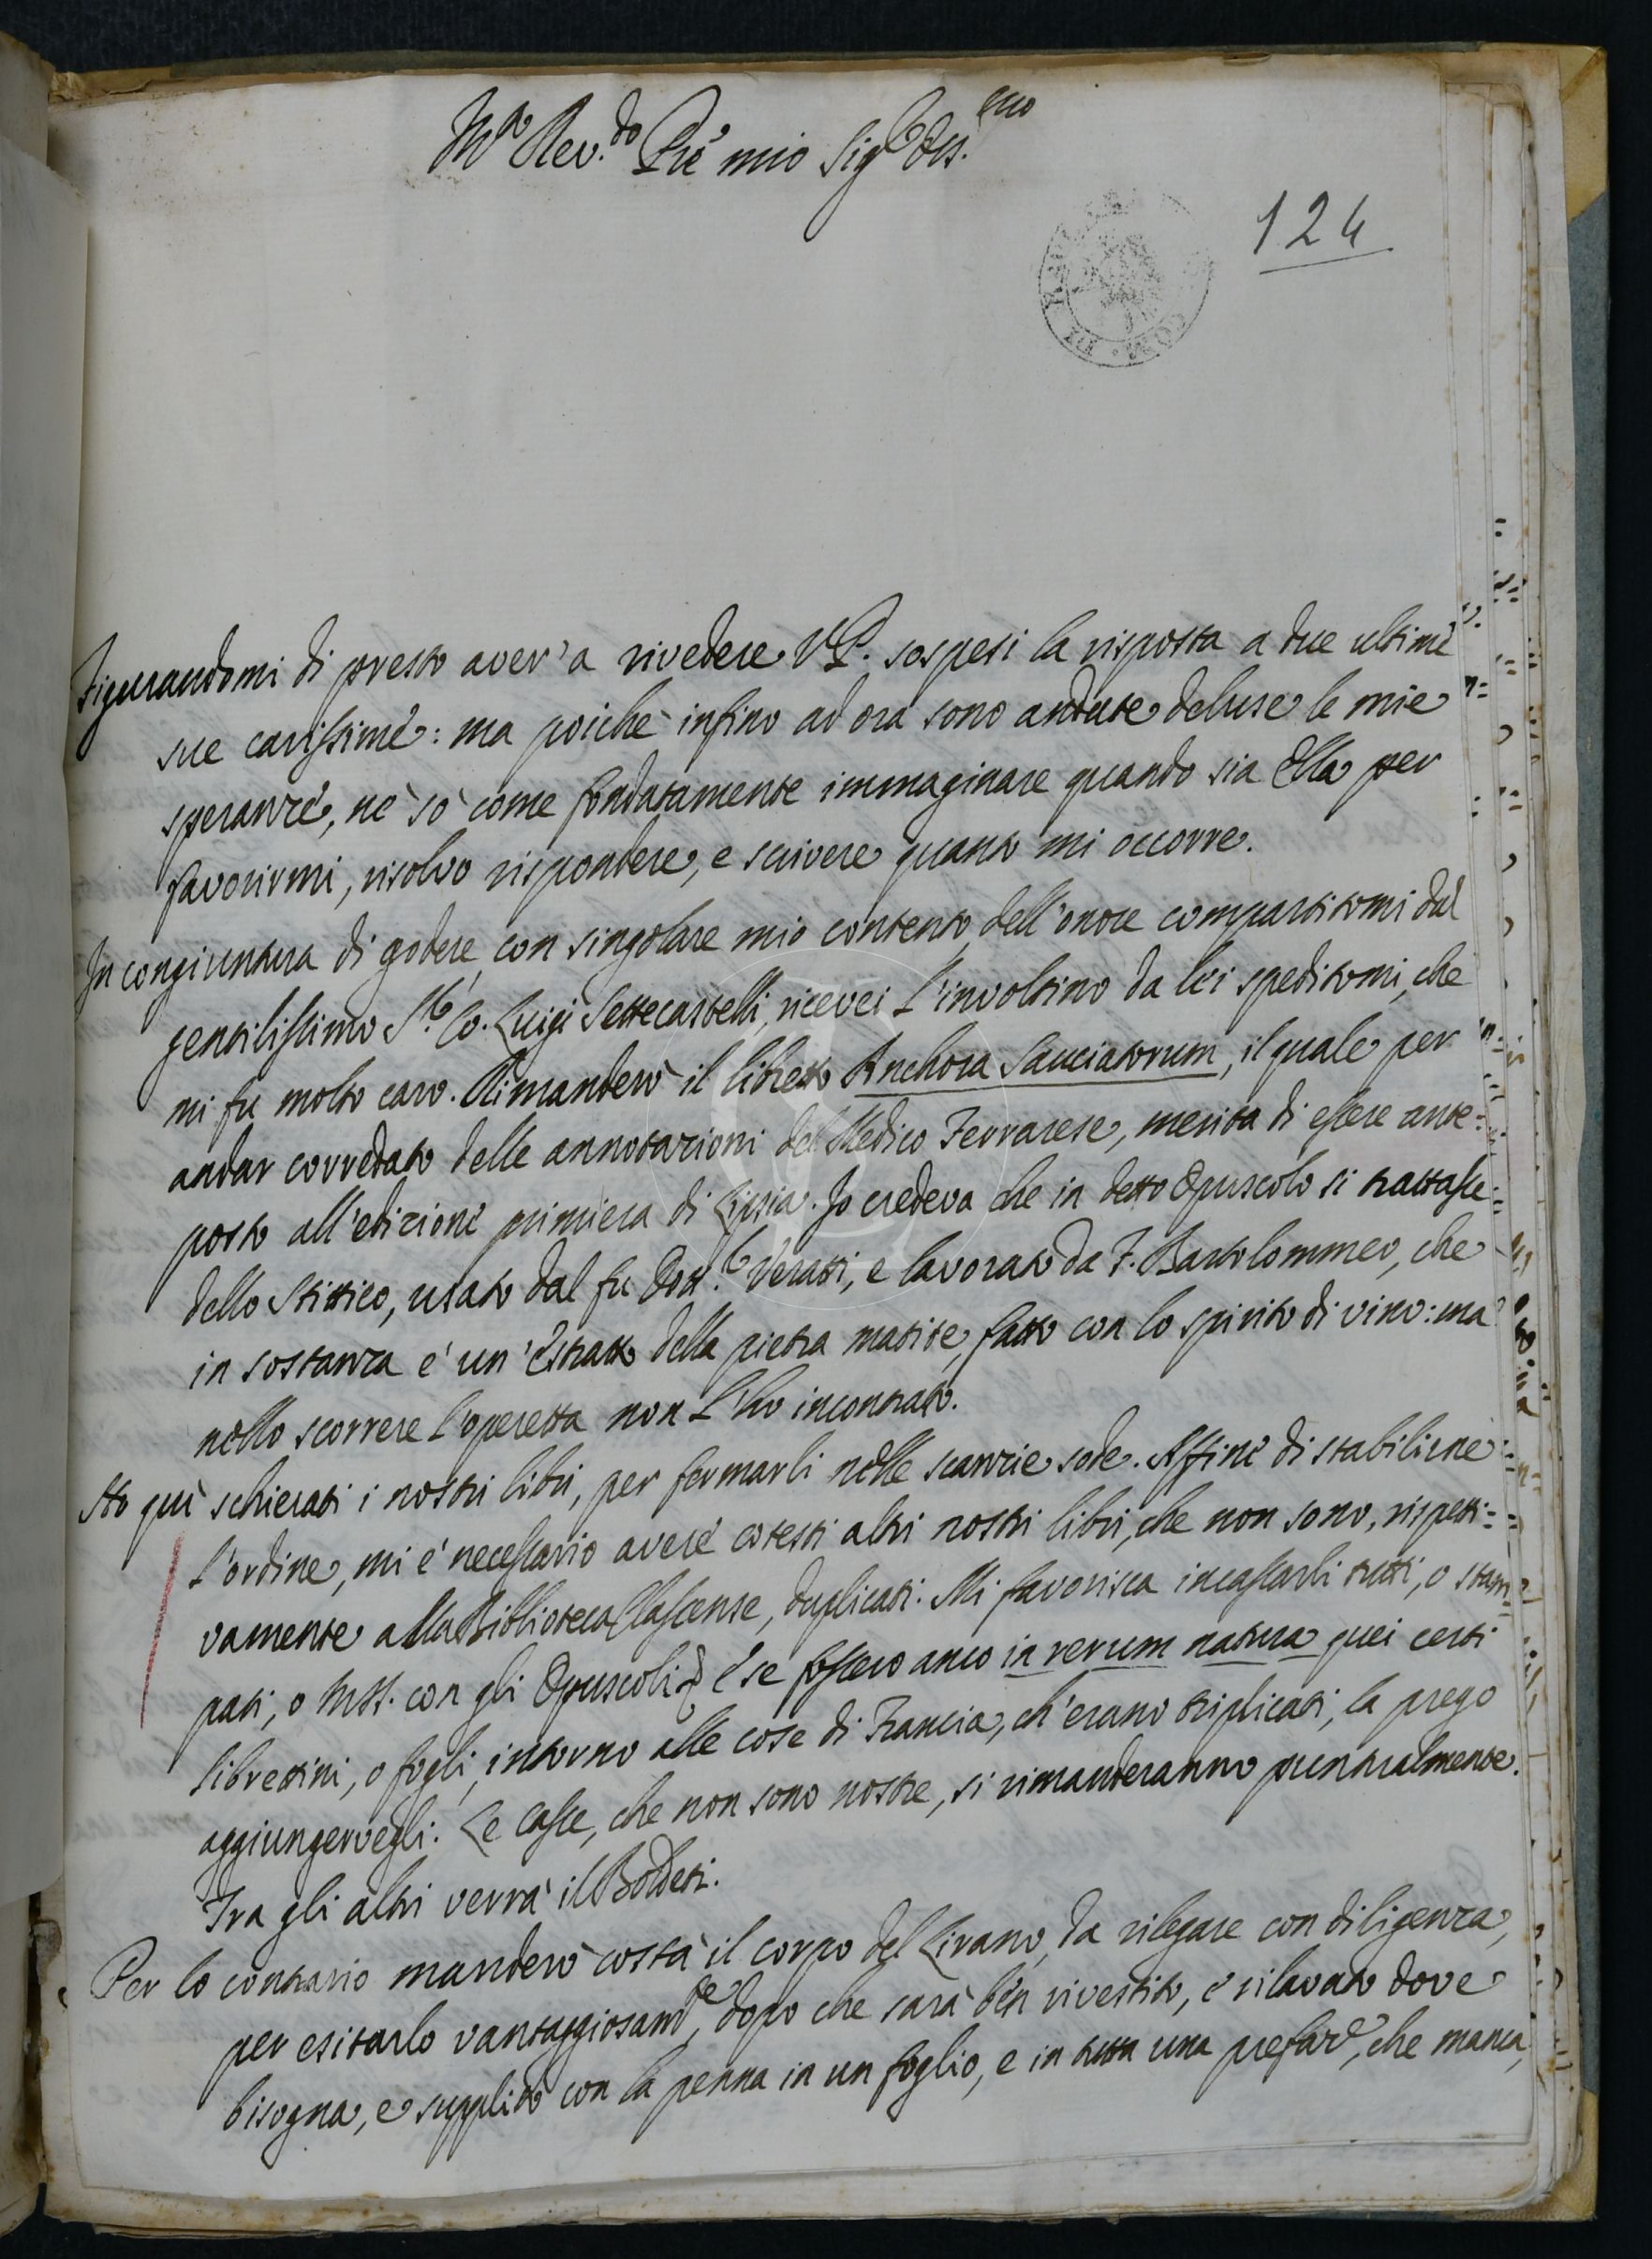 M.o Rev.do Pre mio Sig.r Oss.mo
124
Figurandomi di presto aver'a rivedere V.P. sospesi la risposta a due ultime
sue carissime: ma poichè infino ad ora sono andate deluse le mie
speranze, nè sò come fondatamente immaginare quando sia Ella per
favorirmi, risolvo rispondere, e scrivere quanto mi occorre.
In congiuntura di godere, con singolare mio contento, dell'onore compartitomi dal
gentilissimo S.r Co. Luigi Settecastelli, ricevei l'involtino da lei speditomi, che
mi fu molto caro. Rimanderò il libretto Anchora Sauciatorum, il quale per
andar corredato delle annotazioni del Medico Ferrarese, merita di essere ante=
posto all'edizione primiera di Lipsia. Io credeva che in detto Opuscolo si trattasse
dello Stittico, usato dal fu Dott.r Veratti, e lavorato da F. Bartolommeo, che
in sostanza e' un'Estratto della pietra matite, fatto con lo spirito di vino: ma
nello scorrere l'operetta non l'ho incontrato.
Sto quì schierati i nostri libri, per fermarli nelle scanzie sode. Affine di stabilirne
l'ordine, mi e' necessario avere cotesti altri nostri libri, che non sono, rispetti=
vamente alla Biblioteca Classense, duplicati. Mi favorisca incassarli tutti, o stam
pati, o MSS. con gli Opuscoli e se fossero anco in rerum natura quei certi
librettini, o fogli, intorno alle cose di Francia, ch'erano triplicati, la prego
aggiungervegli. Le Casse, che non sono nostre, si rimanderanno puntualmente.
Fra gli altri verrà il Boldetti.
Per lo contrario manderò costà il corpo del Lirano, da rilegare con diligenza,
per esitarlo vantaggiosam.te, dopo che sarà ben rivestito, e rilavato dove
bisogna, e supplito con la penna in un foglio, e in tutta una prefaz.e, che manca,